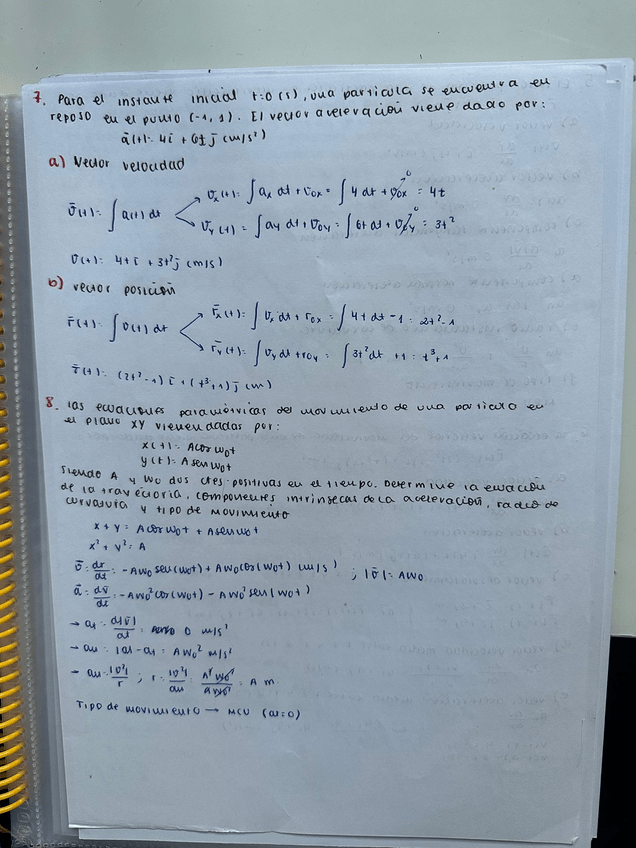 7. Para el instante inicial t=0(s), una partícula se encuentra en
reposo en el punto (-1, 1). El vector aceleración viene dado por:
ā(t)= 4ī + 6t j̄ (m/s²)
a) Vector velocidad
v̄(t)= ∫ a(t) dt
v̄x(t)= ∫ ax dt + v̄ox = ∫ 4 dt + v̄ox⁰ = 4t
v̄y(t)= ∫ ay dt + v̄oy = ∫ 6t dt + v̄oy⁰ = 3t²
v(t)= 4t ī + 3t² j̄ (m/s)
b) vector posición
r̄(t)= ∫ v(t) dt
r̄x(t)= ∫ v̄x dt + rox = ∫ 4t dt - 1 = 2t²-1
r̄y(t)= ∫ v̄y dt + roy = ∫ 3t² dt +1 = t³+1
r̄(t)= (2t²-1) ī + (t³+1) j̄ (m)
8. Las ecuaciones paramétricas del movimiento de una partícula en
el plano XY vienen dadas por:
x(t)= A cos wot
y(t)= A sen wot
siendo A y wo dos ctes. positivas en el tiempo. Determine la ecuación
de la trayectoria, componentes intrínsecas de la aceleración, radio de
curvatura y tipo de movimiento
x + y = A cos wot + A sen wot
x² + y² = A
v̄ = dr/dt = -Awo sen(wot) + Awo cos(wot) (m/s) ; |v̄| = Awo
ā = dv̄/dt = -Awo² cos(wot) - Awo² sen(wot)
→ at = d|v̄|/dt = 0 m/s²
→ an = |a| - at = Awo² m/s²
→ an = |v²|/r ; r = |v²|/an = A²wo²/Awo² = A m
Tipo de movimiento → MCU (at=0)